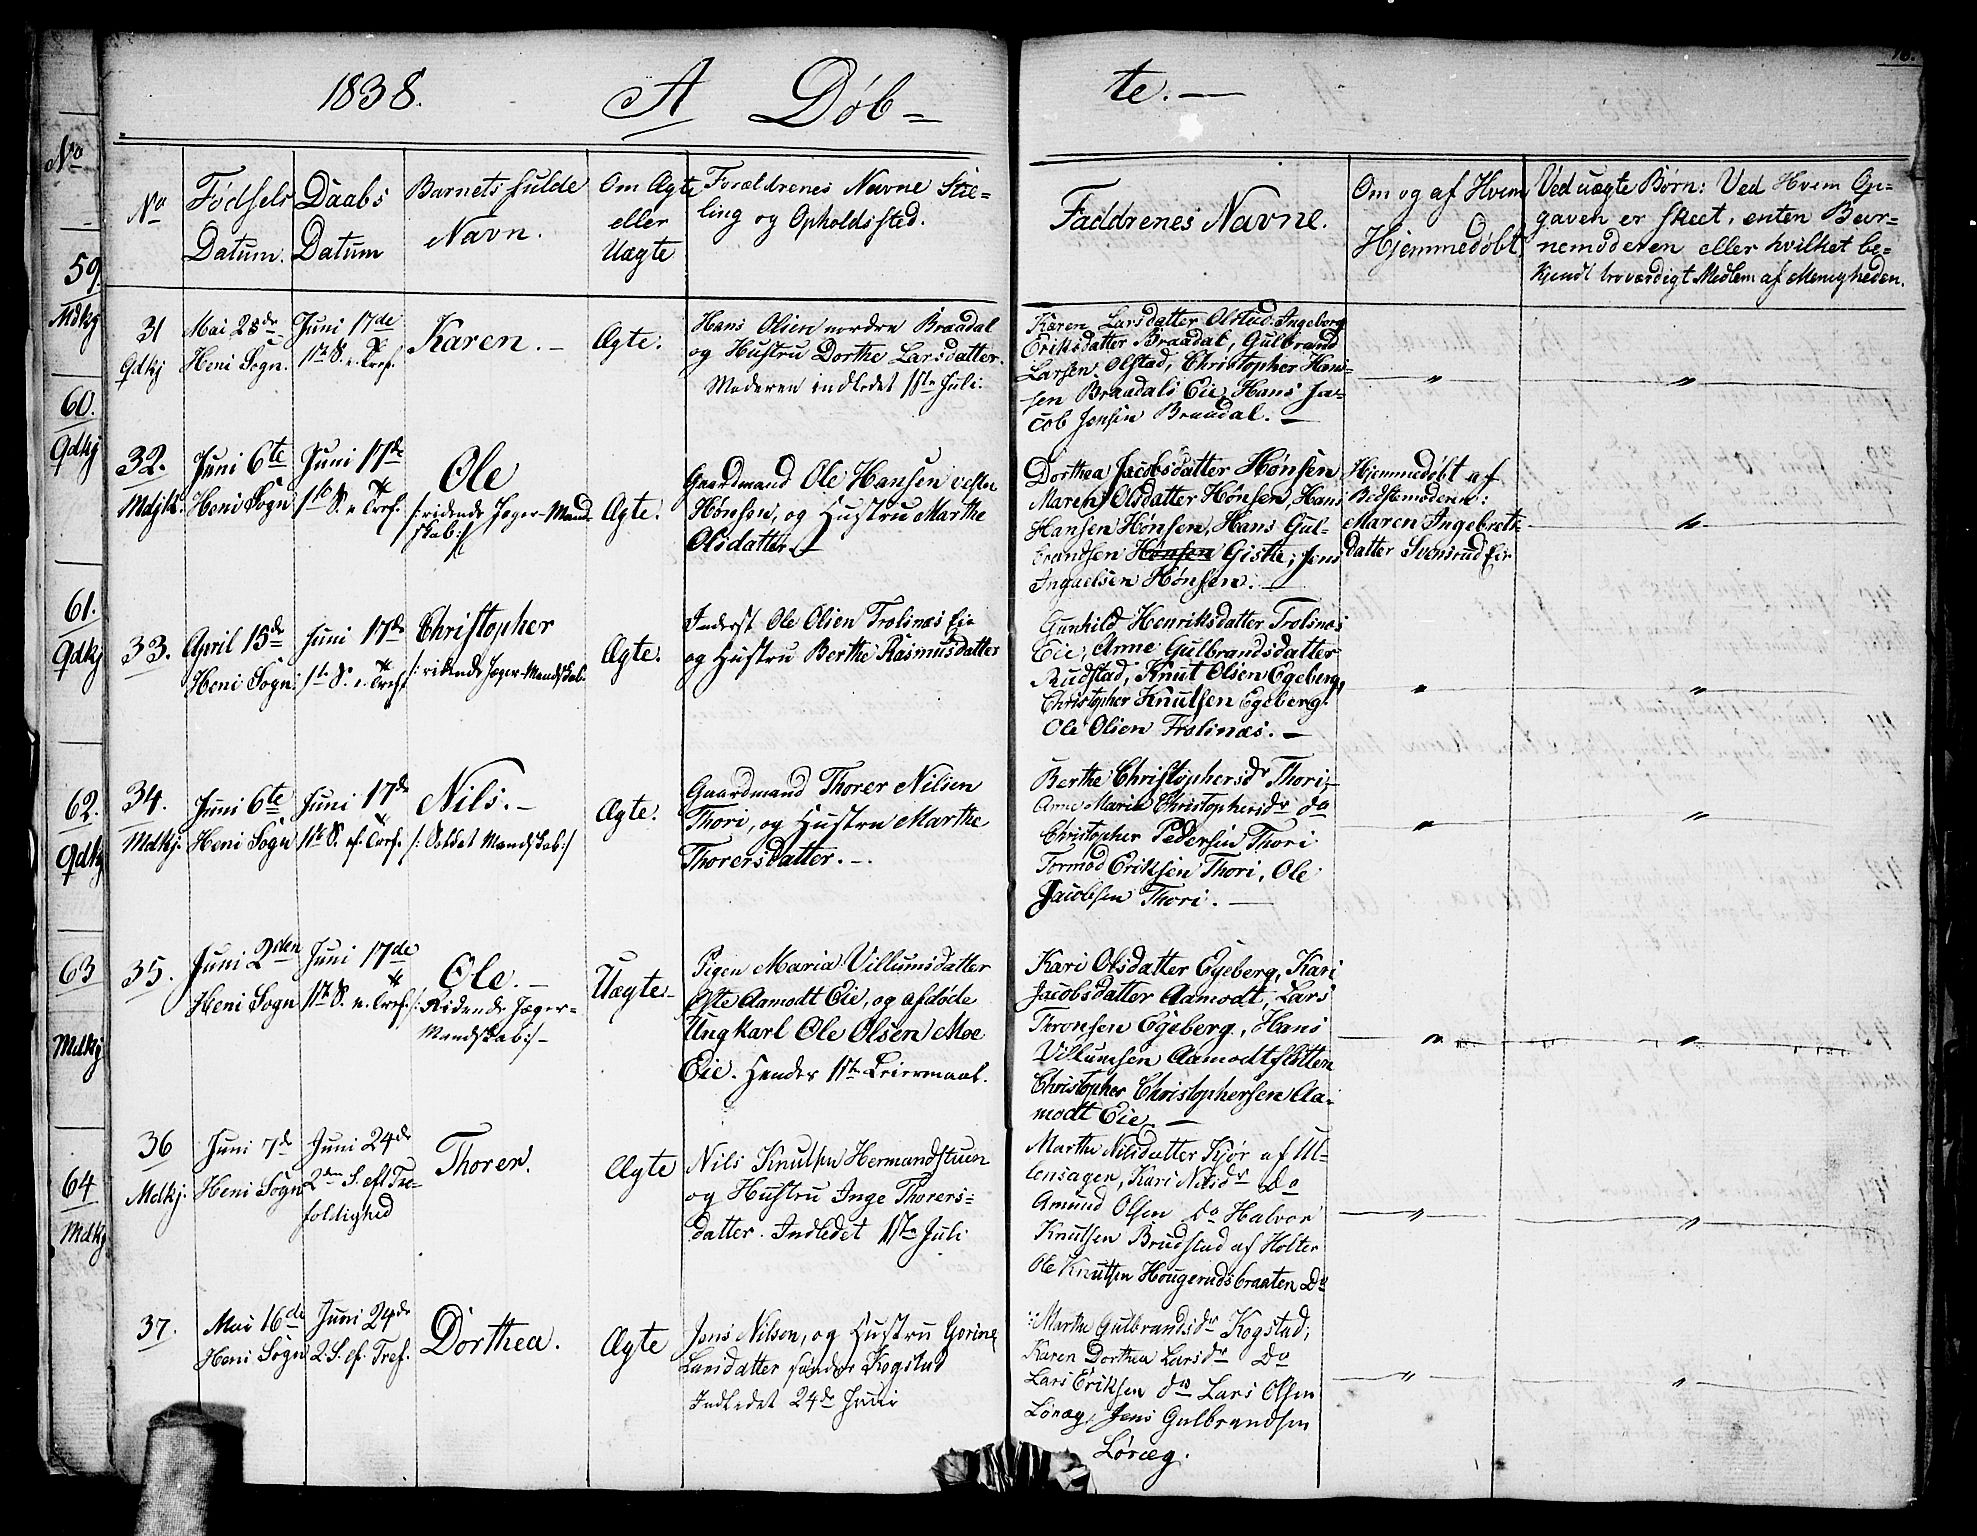 1838. A Døb= te. —
No
59.
Mdkj
60.
Qdkj
61.
Qdkj
62.
Qdkj
63
Mdkj
64
Mdkj
No
Fødsels
Datum.
Daabs
Datum
Barnets fulde
Navn.
Om Ægte
eller
Uægte
Forældrenes Navne Stil=
ling og Opholdssted.
Faddrenes Navne.
Om og af Hvem
Hjemmedøbt
Ved uægte Børn: Ved Hvem Op=
gaven er skeet, enten Bar=
nemoderen eller hvilket be=
kjendt troværdigt Medlem af Menigheden.
31
Qdkj
Mai 28de
Heni Sogn.
Juni 17de
1ste S. e. Tref.
Karen. —
Ægte.
Hans Olsen nordre Braadal
og Hustru Dorthe Larsdatter.
Moderen indledet 1ste Juli.
Karen Larsdatter Olstad, Ingeborg
Eriksdatter Braadal, Gulbrand
Larsen Olstad, Christopher Han=
sen Braadals Eie, Hans Ja=
cob Jensen Braadal. —
"
"
32.
Mdjk.
Juni 6te
Heni Sogn
Juni 17de
1ste S. e. Tref.
Ole
/: ridende Jæger-Mand
skab :/
Ægte.
Gaardmand Ole Hansen
Hønsen, og Hustru Marthe
Olsdatter. —
Dorthea Jacobsdatter Hønsen
Maren Olsdatter Hønsen, Hans
Hansen Hønsen, Hans Gul=
brandsen Hønsen Gistie, Jens
Hønsen. —
Hjemmedøbt af
Bedstemoderen:
Maren Ingebrets=
datter Svensrud Eie
"
33.
April 15de
Heni Sogn
Juni 17de
1ste S. e. Tref
Christopher
/: ridende Jæger-Mandskab.
Ægte.
Inderst Ole Olsen Trolinæs Eie
og Hustru Berthe Rasmusdatter
Gunhild Henriksdatter Trolinæs
Eie, Anne Gulbrandsdatter
Rudstad, Knut Olsen Egeberg,
Christopher Knutsen Egeberg.
Ole Olsen Trolinæs. —
"
"
34.
Mdkj.
Juni 6te
Heni Sogn
Juni 17de
1ste S. ef. Tref.
Nils. —
/: Soldat Mandskab :/
Ægte.
Gaardmand Thorer Nilsen
Thori, og Hustru Marthe
Thorersdatter. —
Berthe Christophersdr Thori,
Anne Maria Christophersdr do
Christopher Pedersen Thori
Tormod Eriksen Thori, Ole
Jacobsen Thori. —
"
"
35.
Juni 2den
Heni Sogn
Juni 17de
1ste S. e. Tref.
Ole. —
/: Ridende Jæger=
Mandskab :/ —
Uægte
Pigen Maria Villumsdatter
Aamodt Eie, og afdøde
Ungkarl Ole Olsen Moe
Eie. Hendes 1ste Leiermaal.
Kari Olsdatter Egeberg, Kari
Jacobsdatter Aamodt, Lars
Thronsen Egeberg, Hans
Villumsen Aamodtslätten
Christopher Christophersen Aa=
modt Eie. —
"
"
36
Mdkj.
Juni 7de
Heni Sogn
Juni 24de
2den S. eft Tre=
foldighed
Thorer.
Ægte
Nils Knutsen Hermandstuen
og Hustru Inge Thorers=
datter. Indledet 1ste Juli
Marthe Nilsdatter Kjør af Ul=
lensager, Kari Nilsdr Do
Amund Olsen do Halvor
Knutsen Brudstad af Holter
Ole Knutsen Hougerudsbraaten Do
"
"
37.
Mai 16de
Heni Sogn
Juni 24de
2. S. ef. Tref.
Dorthea.
Ægte
Jens Nilsen, og Hustru Gorine
Larsdatter søndre Kogstad
Indledet 24de Juni
Marthe Gulbrandsdr Kogstad,
Karen Dorthea Larsdr Do
Lars Eriksen do Lars Olsen
Løræg, Jens Gulbrandsen
Løræg.
"
"